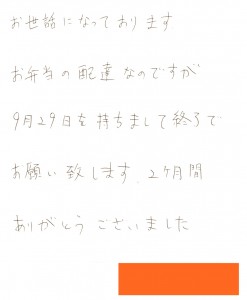 お世話になっております
お弁当の配達なのですが
9月29日を持ちまして終了で
お願い致します 2ヶ月間
ありがとうございました